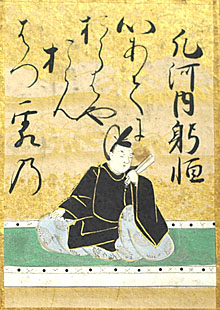 凡河内躬恒
心あてに
おらはや
おらん
はつ霜乃